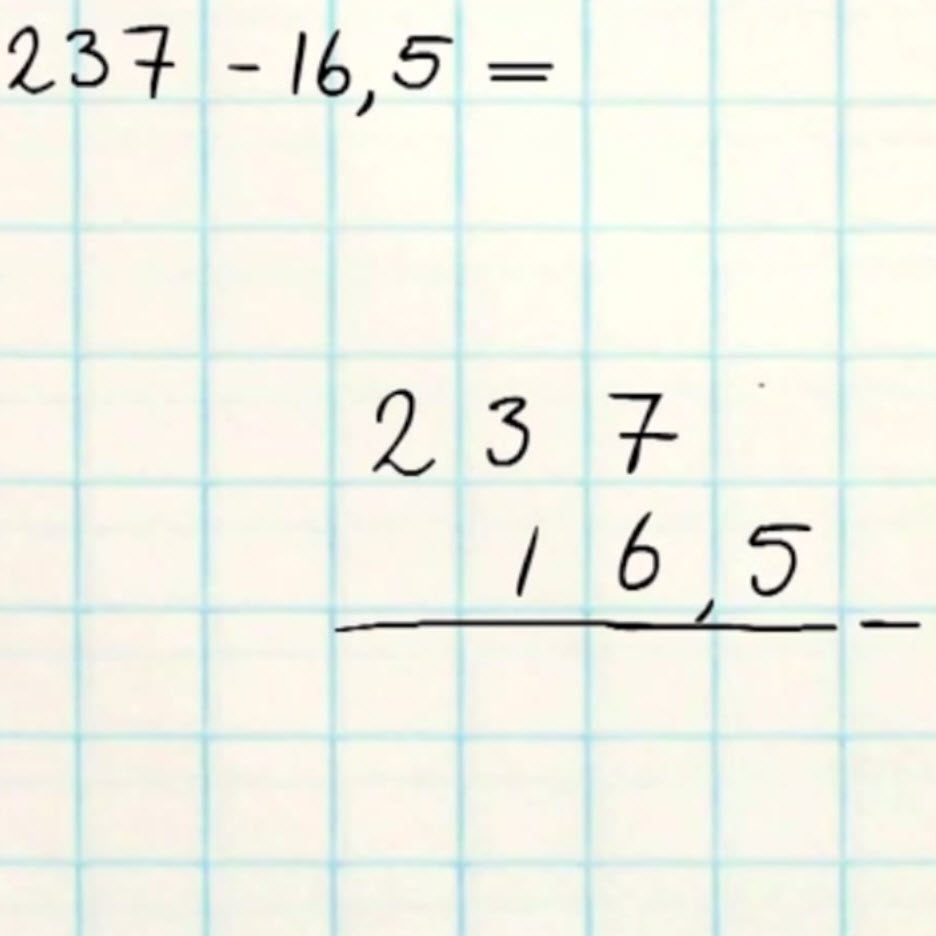 237 - 16,5 =
2 3 7
1 6,5 -